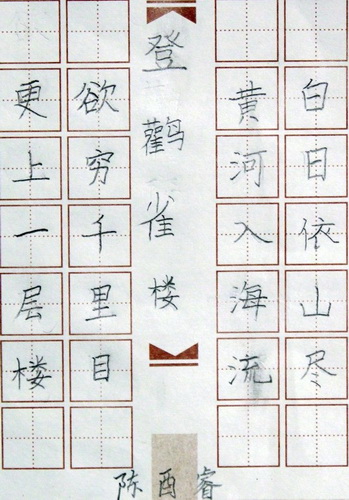 登鹳雀楼
白日依山尽
黄河入海流
欲穷千里目
更上一层楼
陈酉睿